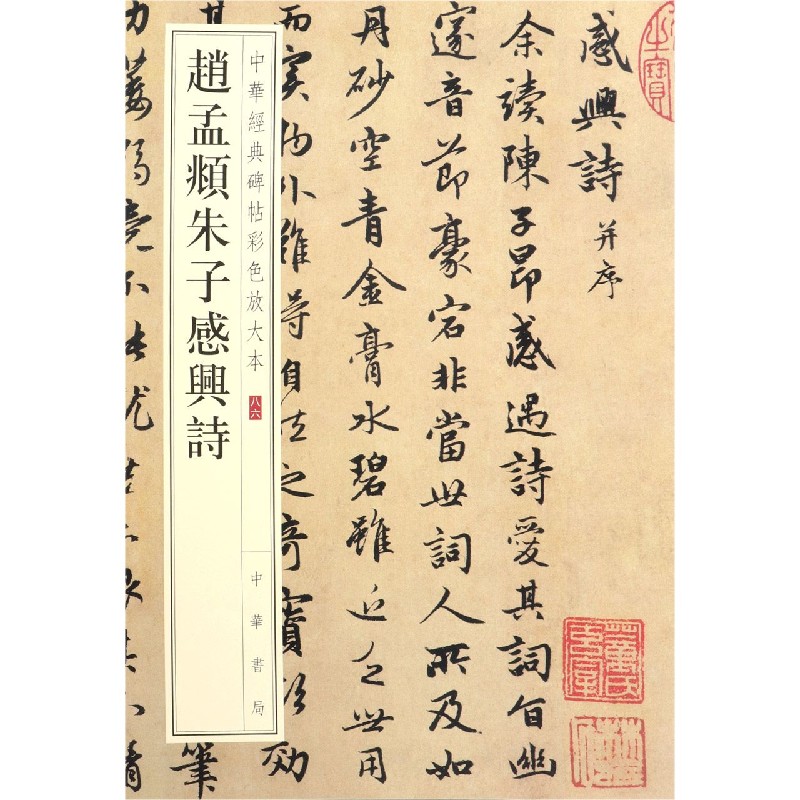 趙孟頫朱子感興詩
中華經典碑帖彩色放大本
八六
中華書局
感興詩 并序
余讀陳子昂感遇詩愛其詞旨幽
邃音節豪宕非當世詞人所及如
丹砂空青金膏水碧雖近乏世用
而實物外難得自然之奇寶欲効
筆
力萎弱竟不
之寶